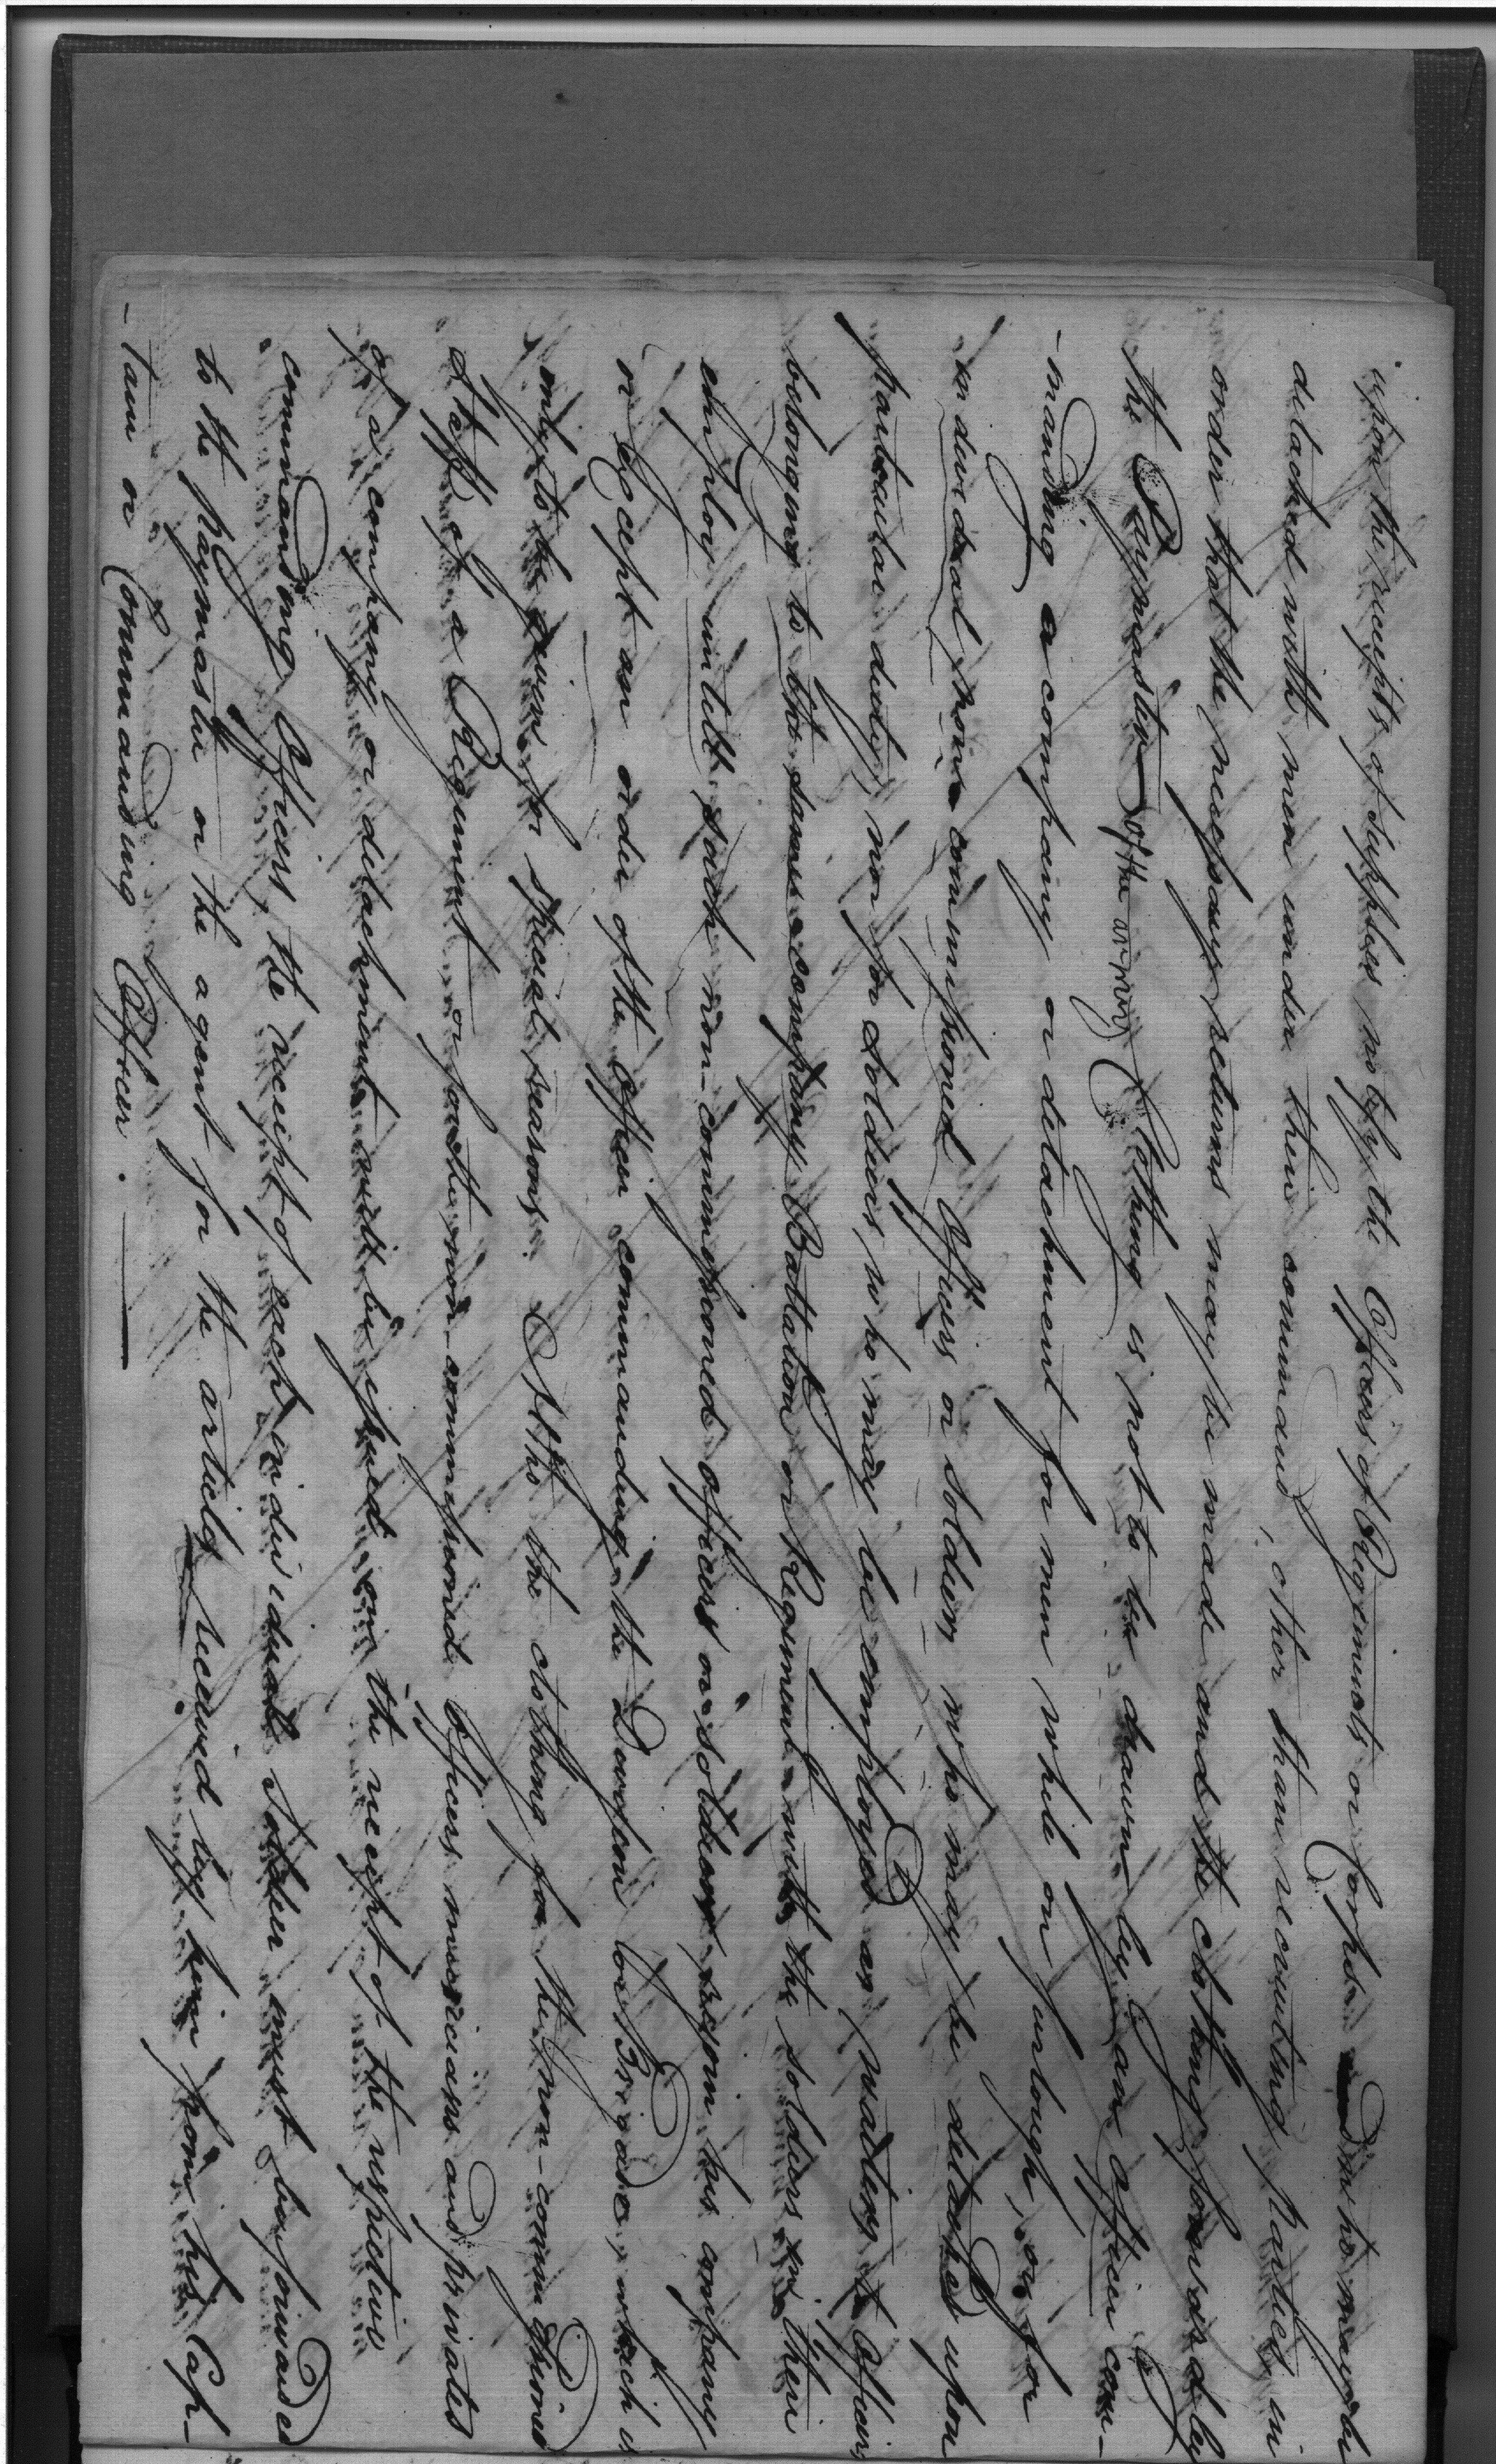 upon the receipts of supplies notify the Officers of Regiments or Corps who may be
detached with men under their command, other than recruiting parties, in
order that the necessary returns may be made and the clothing forwarded by
the Paymaster of the army. Clothing is not to be drawn by an officer com-
-manding a company or detachment for men while on furlough, or for
individual non commissioned Officers or soldiers who may be detached upon
particular duty, nor for soldiers, who may be employed as waiters to Officers
belonging to the same company Battalion or Regiment with the soldiers in their
employ untill such non-commissioned officers or soldiers rejoin his company
except an order of the officer commanding the Division or Brigade, which is
only to be given for special reasons. Also the clothing for the non-commissioned
Staff of a Regiment or for the non-commissioned Officers musicians and privates
of a company or detachment will be issued on the receipt of the respective
commanding Officers, the receipt of each individual soldier must be forwarded
to the paymaster or the agent for the articles received by him from his Cap-
-tain or Commanding Officer.